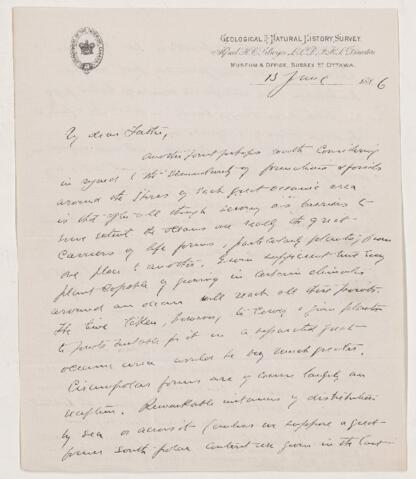 GEOLOGICAL & NATURAL HISTORY SURVEY.
Alfred R.C. Selwyn, L.L.D. F.R.S. Director
MUSEUM & OFFICE, SUSSEX ST OTTAWA.
13 June 1886
My dear Father,
Another point perhaps worth considering
in regard to the similarity of formations & fossils
around the shores of each great oceanic area
is that after all though serving as barriers to
some extent the oceans are really the great
carriers of life forms, particularly plants, from
one place to another. Given sufficient time every
plant capable of growing in certain climates
around an ocean will reach all these points
The time taken, however, to carry a given plant
to points suitable for it in a separated great
oceanic area would be very much greater.
Circumpolar forms are of course largely an
exception. Remarkable instances of distribution
by sea or across it (unless we suppose a great
former South polar continent) are given in the